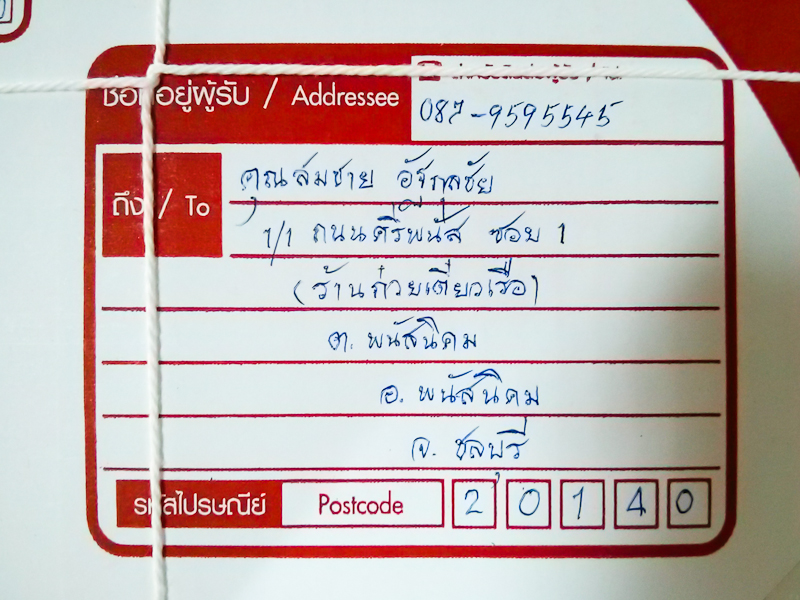 ชื่อที่อยู่ผู้รับ / Addressee
087-9595545
ถึง / To
คุณสมชาย อัฐกุลชัย
1/1 ถนนศรีพนัส ซอย 1
(ร้านก๋วยเตี๋ยวเรือ)
ต. พนัสนิคม
อ. พนัสนิคม
จ. ชลบุรี
รหัสไปรษณีย์ Postcode 20140